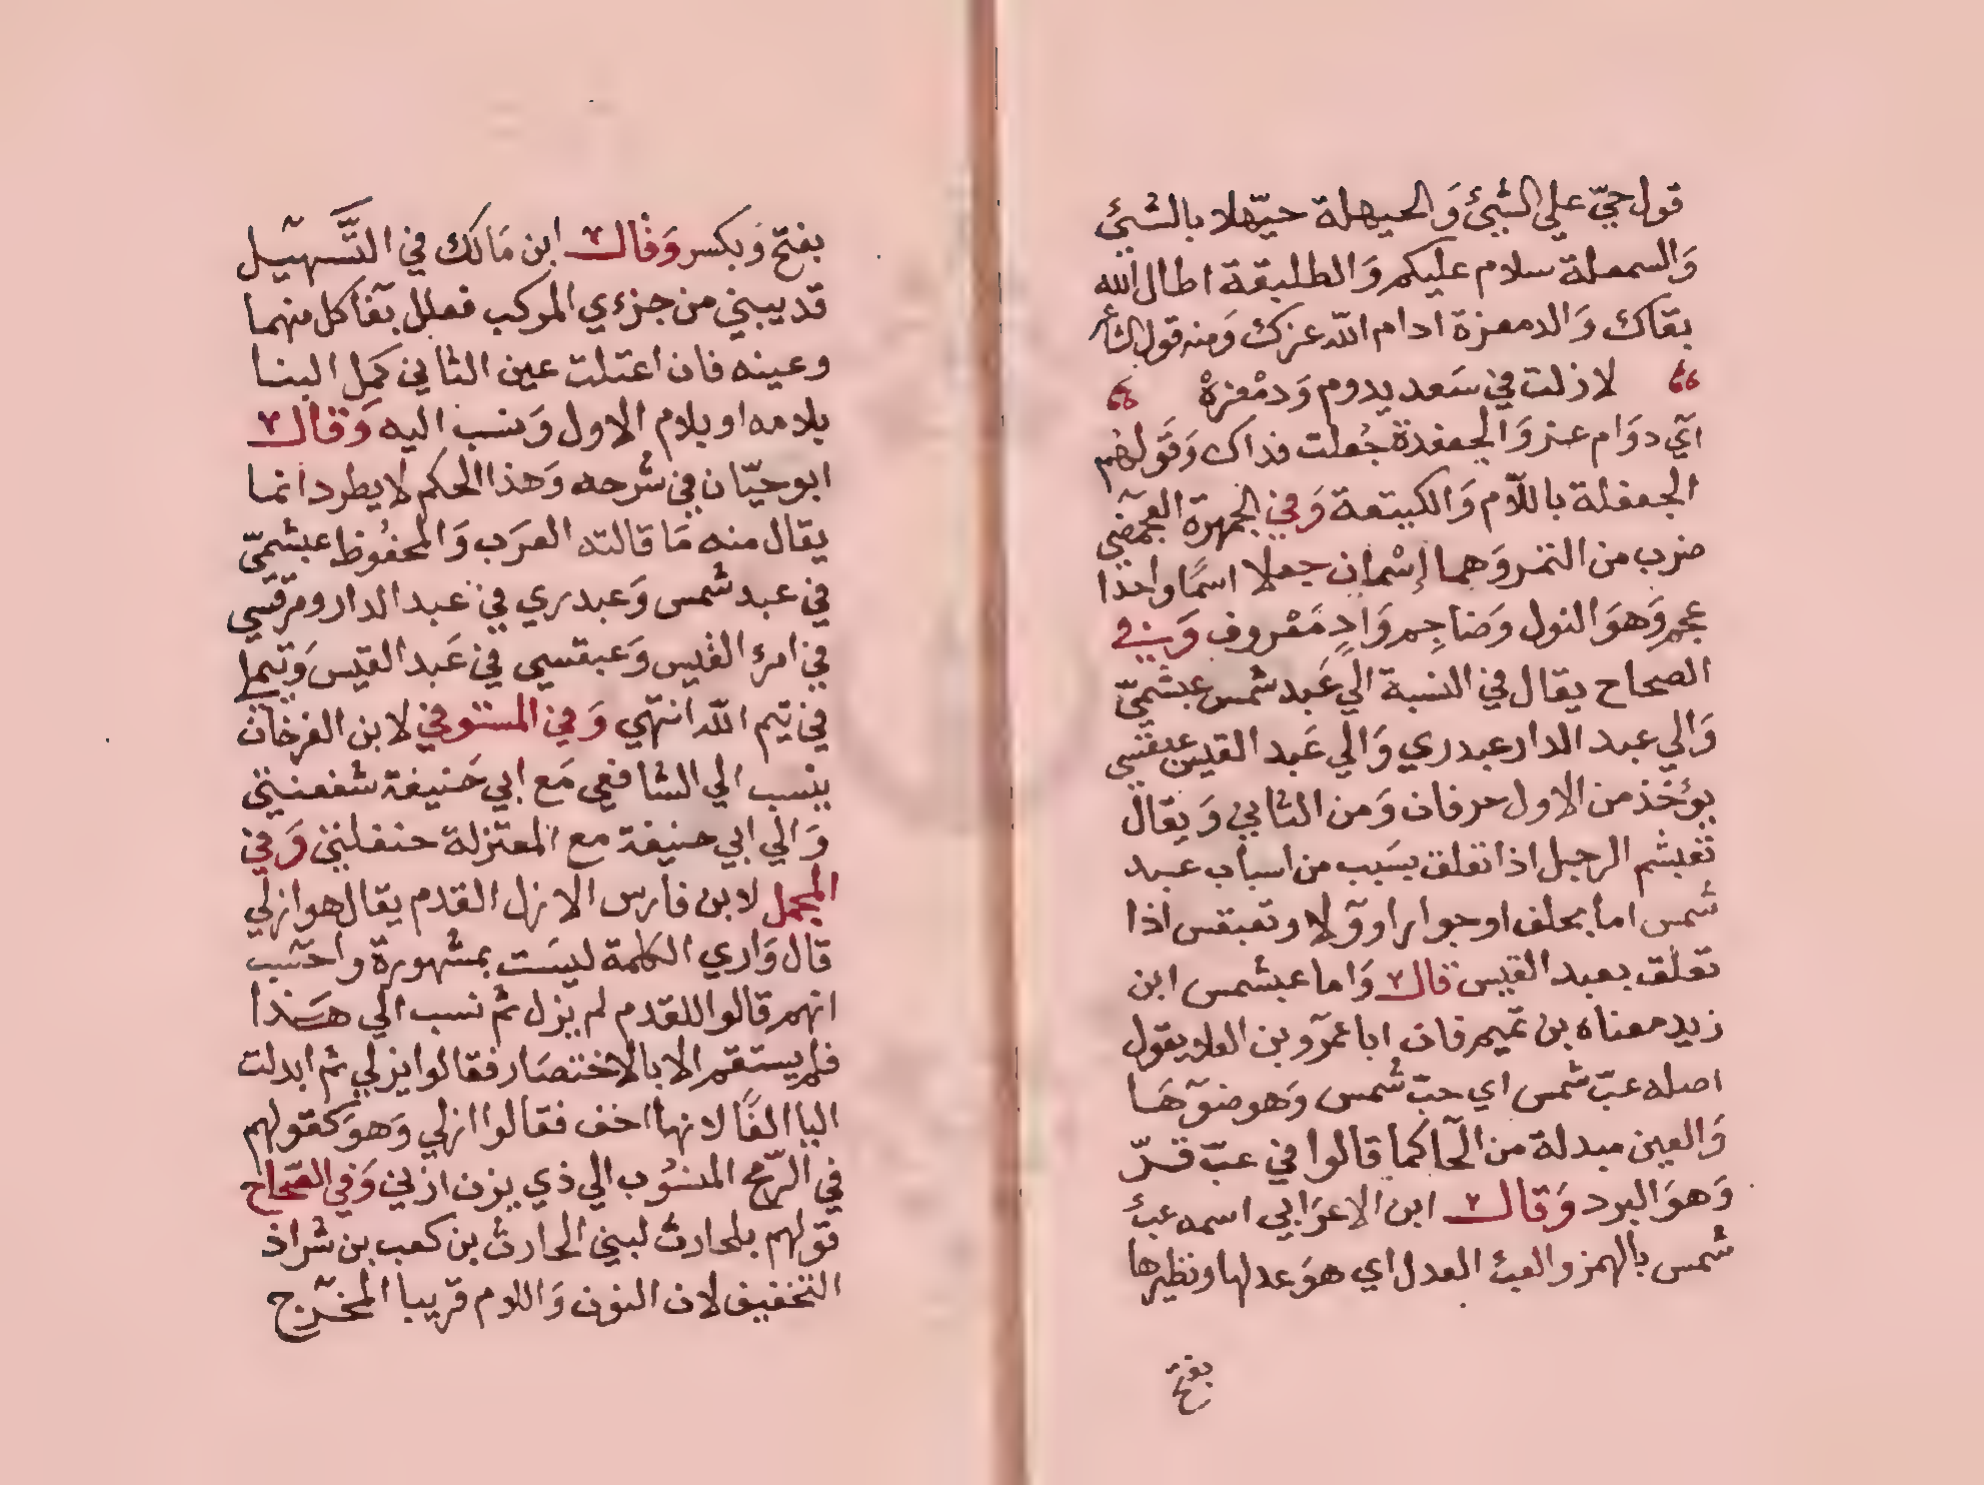 قول حيّ علي الشيئ وَالحيهلة حيّهلا بالشيئ
وَالسمعلة سلام عليكم وَالطلبقة اطال الله
بقاك وَالدمعزة ادام الله عزك وَمنه قول الشاعر
لازلت في سَعد يدوم وَدمْعزهْ
آي دوَام عز وَالجعفدة جُعلت فداك وَقولهُم
الجعفلة باللّام وَالكبتعة وَفي الجمهرة العجمضى
ضرب من التمر وَهما إسْمان جعلا اسمًا واحدًا
عجم وَهوَ النول وَضاجِم وَادٍ مَعْروف وَفي
الصحاح يقال في النسبة الي عَبد شمس عبشميّ
وَالي عبد الدار عبدري وَالي عَبد القيس عبقسي
يؤخذ من الاول حرفان وَمن الثاني وَيقال
تعبشم الرجل اذا تعلق بسَبب من اسباب عبد
شمس اما بحلف او جوار او وّلا وتعبقس اذا
تعلق بعبد القيس قال وَاما عبشمس ابن
زيد معناه بن تميم فان ابا عمرو بن العلا يقول
اصله عبّ شمس اي حبّ شمس وَهو ضوّهَا
وَالعين مبدلة من الحّا كما قالوا في عبّ قرّ
وَهوَ البرد وَقال ابن الاعرَابي اسمه عبئ
شمس بالهمز والعبئ العدل اي هوَ عدلها ونظيرها
بفتح
بفتح وَبكسر وَقال ابن مَالك في التَّسهيل
قد يبني من جزءي المركب فعلل بفا كل منهما
وعينه فان اعتلت عين الثاني كمل البنا
بلامه او بلام الاول وَنسب اليه وَقال
ابو حيّان في شرحه وَهذا الحكم لا يطرد انما
يقال منه مَا قالته العرَب وَالمحفُوظ عبشميّ
في عبد شمس وَعبدري في عبد الدار ومرقسي
في امرئ القيس وَعبقسي في عَبد القيس وَتيملي
في تيم الله انتهي وَفي المستوفي لابن الفرخان
ينسب الي الشافعي مَع ابي حَنيفة شفعنتي
وَالي ابي حنيفة مع المعتزلة حنفلتي وَفي
المجمل لابن فارس الازل القدم يقال هو ازلي
قال وَاري الكلمة ليسَت بمشهورة واحسَب
انهم قالوا للقدم لم يزل ثم نسب الي هَذا
فلم يستقم الا بالاختصَار فقالوا يزلي ثم ابدلت
اليا الفًا لانها اخف فقالوا ازلي وَهوَ كقولهم
في الرّمح المنسُوب الي ذي يزن ازني وَفي الصّحاح
قولهم بلحارث لبني الحارث بن كعب بن شواذ
التخفيف لان النون وَاللام قريبا المخرج